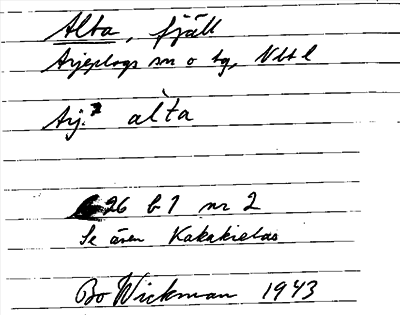 Alta, fjäll
Arjeplogs sn o tg, Vbt l
Arj. àlta
26 b 1 nr 2
Se även Kakakielas
Bo Wickman 1943